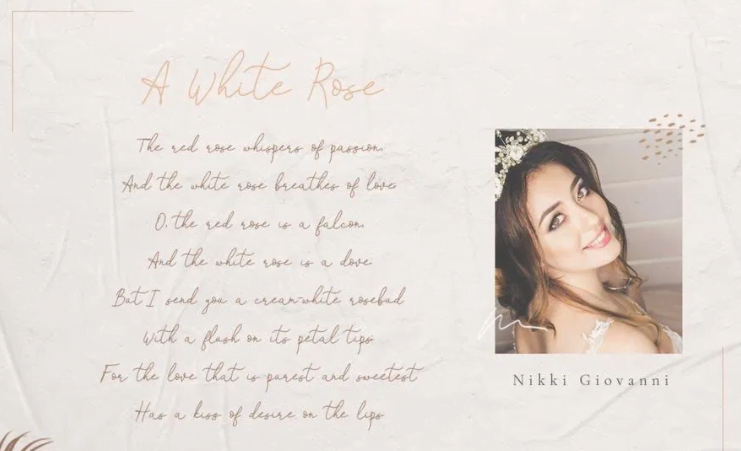 A White Rose
The red rose whispers of passion,
And the white rose breathes of love;
O, the red rose is a falcon,
And the white rose is a dove.
But I send you a cream-white rosebud
With a flush on its petal tips
For the love that is purest and sweetest
Has a kiss of desire on the lips
Nikki Giovanni